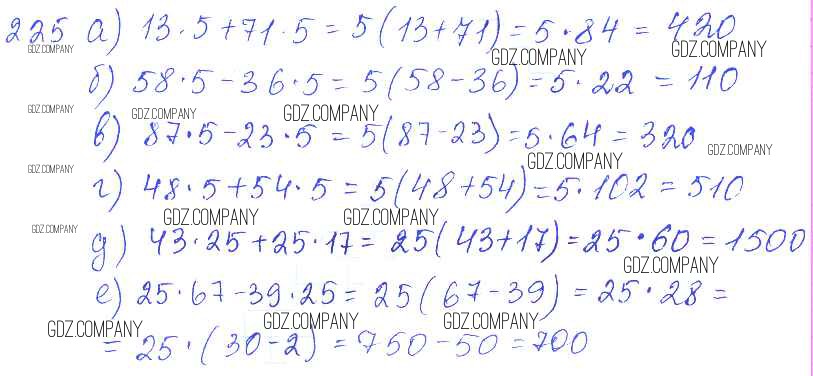 225 а) 13·5+71·5=5(13+71)=5·84=420
GDZ.COMPANY GDZ.COMPANY GDZ.COMPANY
б) 58·5-36·5=5(58-36)=5·22=110
GDZ.COMPANY GDZ.COMPANY GDZ.COMPANY
в) 87·5-23·5=5(87-23)=5·64=320
GDZ.COMPANY GDZ.COMPANY GDZ.COMPANY
г) 48·5+54·5=5(48+54)=5·102=510
GDZ.COMPANY GDZ.COMPANY GDZ.COMPANY
д) 43·25+25·17=25(43+17)=25·60=1500
GDZ.COMPANY
е) 25·67-39·25=25(67-39)=25·28=
GDZ.COMPANY GDZ.COMPANY GDZ.COMPANY
=25·(30-2)=750-50=700